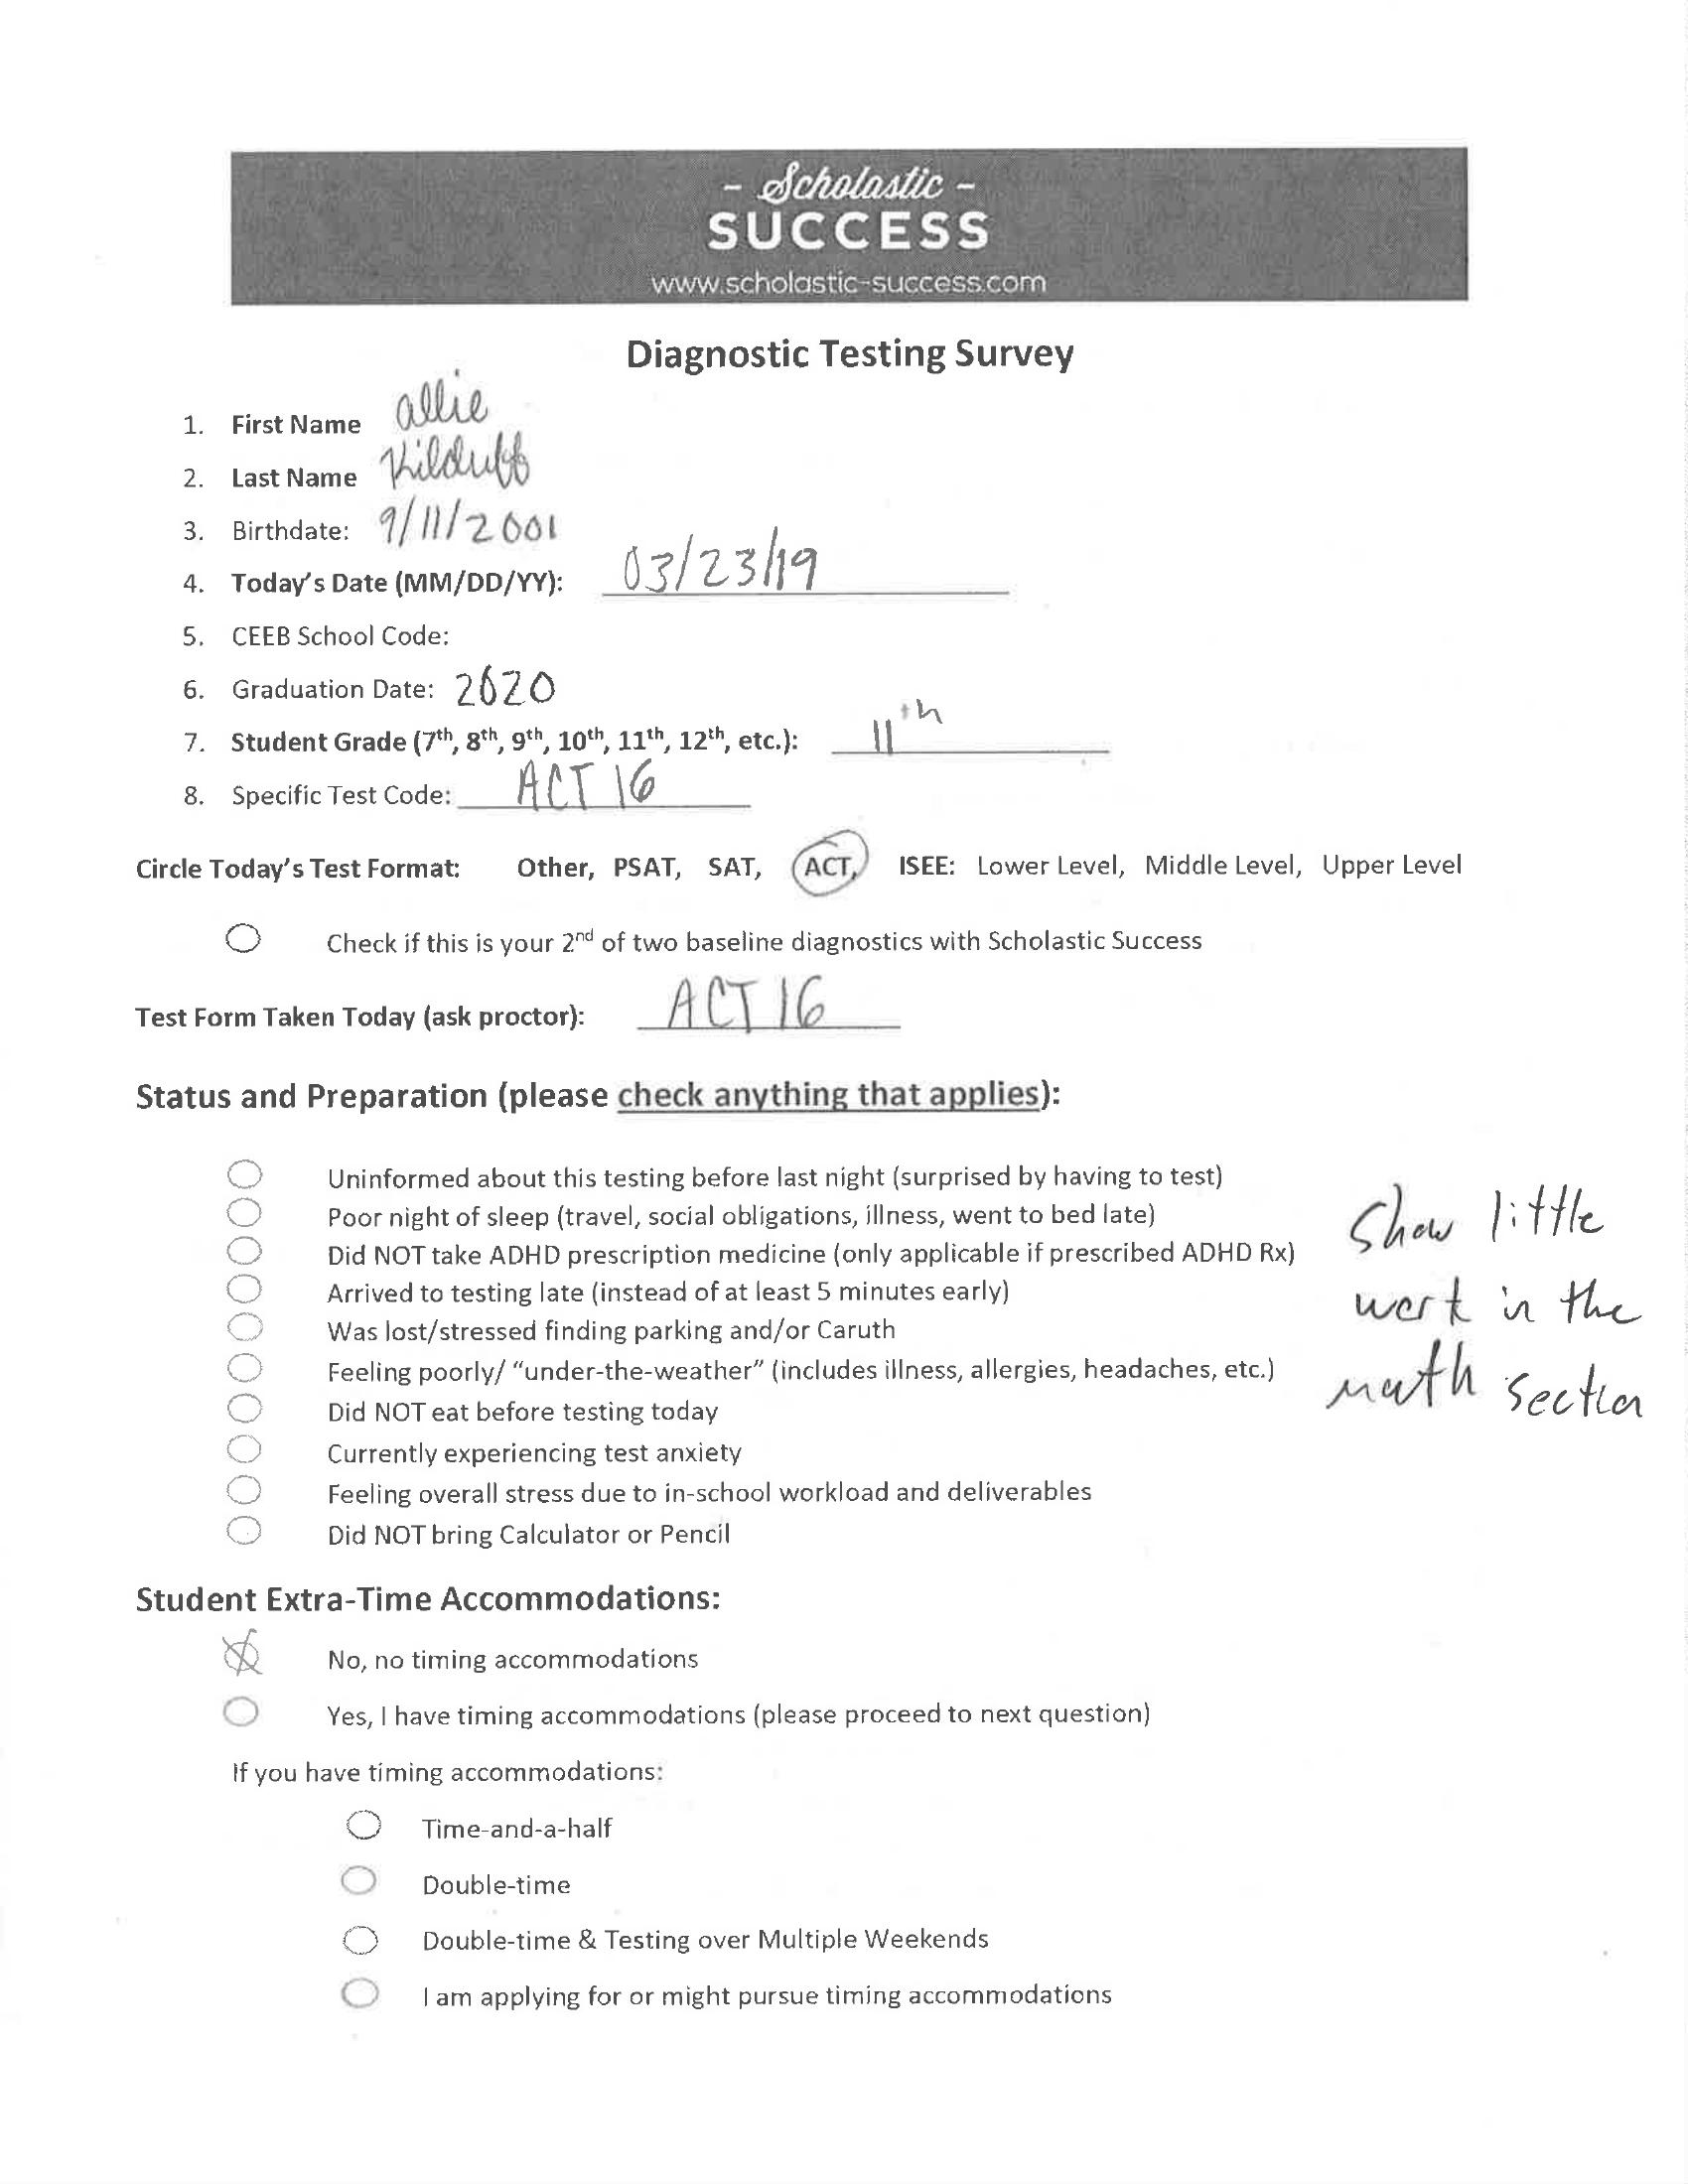 - Scholastic -
SUCCESS
www.scholastic-success.com
Diagnostic Testing Survey
1. First Name allie
2. Last Name Kilduff
3. Birthdate: 9/11/2001
4. Today's Date (MM/DD/YY): 03/23/19
5. CEEB School Code:
6. Graduation Date: 2020
7. Student Grade (7th, 8th, 9th, 10th, 11th, 12th, etc.): 11th
8. Specific Test Code: ACT 16
Circle Today's Test Format: Other, PSAT, SAT, ACT, ISEE: Lower Level, Middle Level, Upper Level
Check if this is your 2nd of two baseline diagnostics with Scholastic Success
Test Form Taken Today (ask proctor): ACT 16
Status and Preparation (please check anything that applies):
Uninformed about this testing before last night (surprised by having to test)
Poor night of sleep (travel, social obligations, illness, went to bed late)
Did NOT take ADHD prescription medicine (only applicable if prescribed ADHD Rx)
Arrived to testing late (instead of at least 5 minutes early)
Was lost/stressed finding parking and/or Caruth
Feeling poorly/ "under-the-weather" (includes illness, allergies, headaches, etc.)
Did NOT eat before testing today
Currently experiencing test anxiety
Feeling overall stress due to in-school workload and deliverables
Did NOT bring Calculator or Pencil
Show little
work in the
math section
Student Extra-Time Accommodations:
No, no timing accommodations
Yes, I have timing accommodations (please proceed to next question)
If you have timing accommodations:
Time-and-a-half
Double-time
Double-time & Testing over Multiple Weekends
I am applying for or might pursue timing accommodations